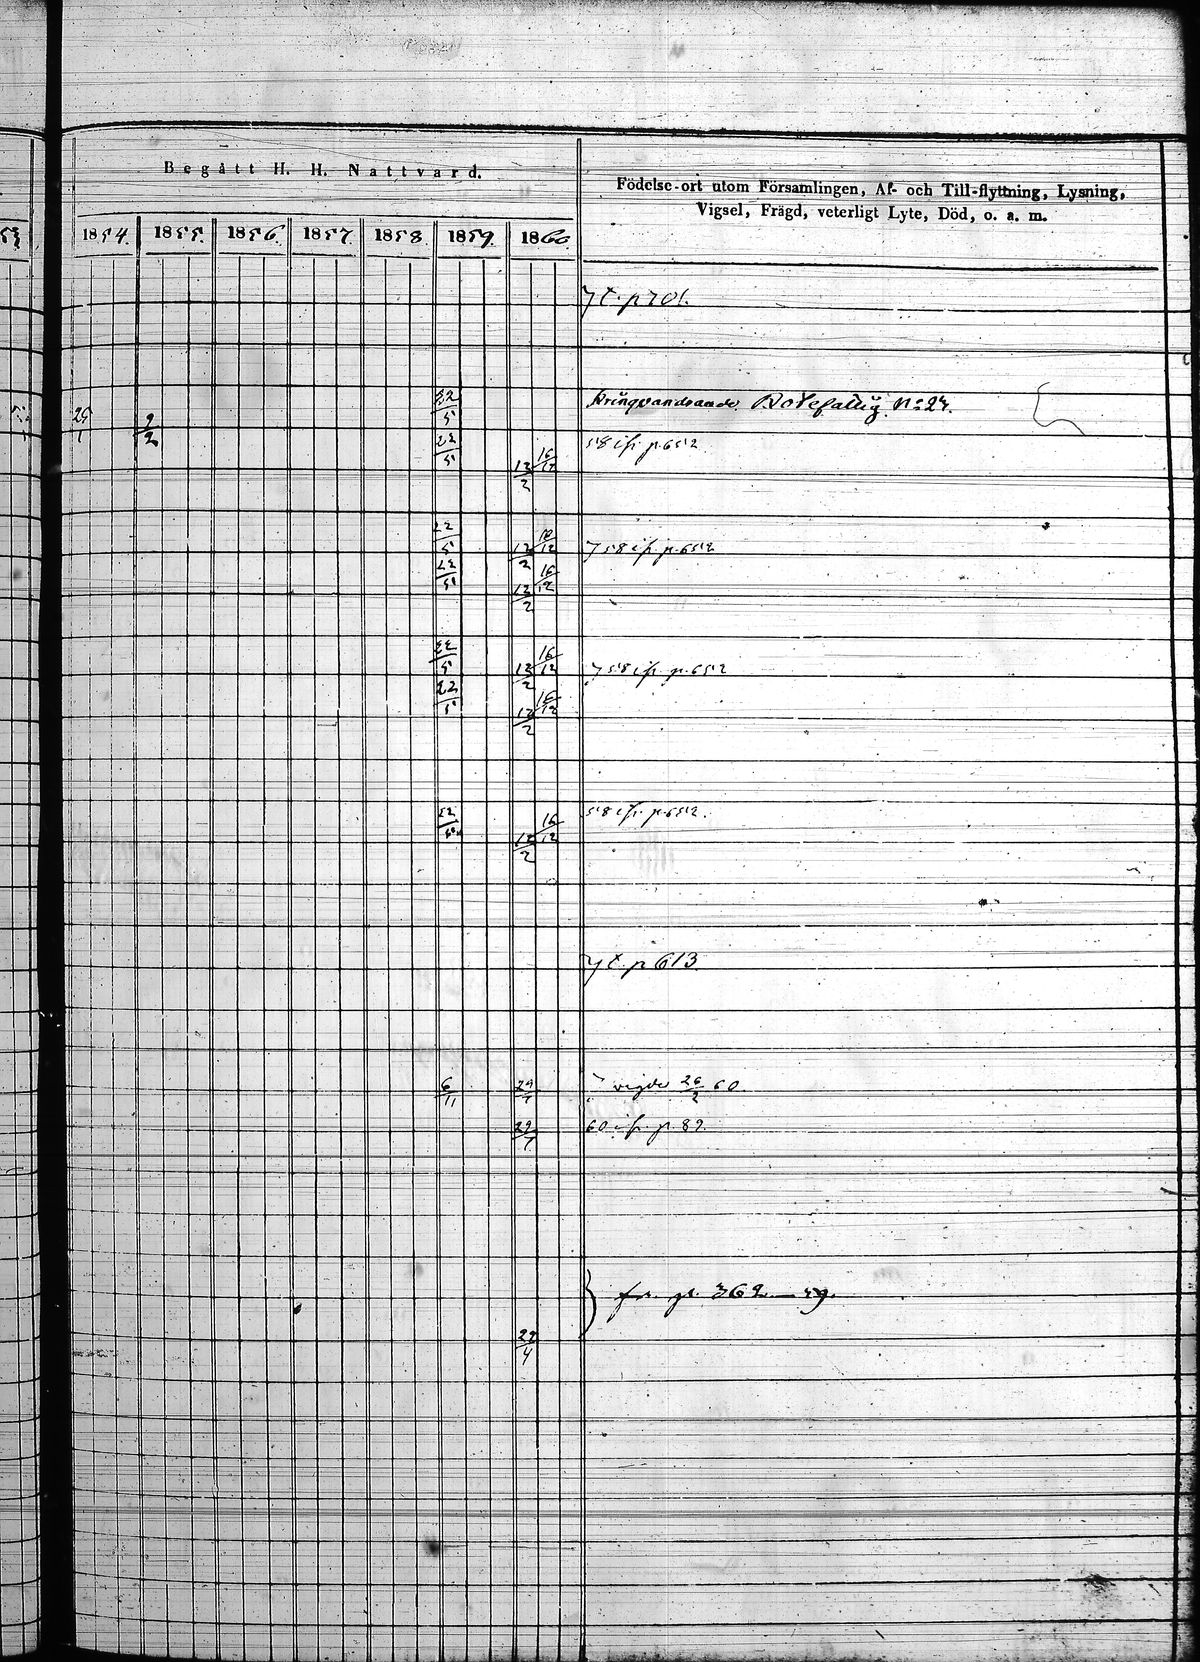 Begått H. H. Nattvard.
Födelse-ort utom Församlingen, Af- och Till-flyttning, Lysning,
Vigsel, Frägd, veterligt Lyte, Död, o. a. m.
1854. 1855. 1856. 1857. 1858. 1859. 1860.
t. p 701.
22/5 Kringvandrande. Rotefattig No 24.
25/1 2/2
22/5 58 ifr. p. 652
12/2 16/12
22/5 12/2 16/12 58 ifr. p. 652
22/5 12/2 16/12
22/5 12/2 16/12 58 ifr. p. 652
22/5 12/2 16/12
22/5 12/2 16/12 58 ifr. p. 652.
t. p 613.
6/11 29/7 vigde 26/2 60.
29/7 60 ifr. p. 87.
fr. p. 362 — 59.
22/4